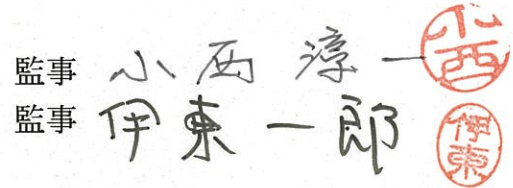 監事 小西淳一 小西
監事 伊東一郎 伊東